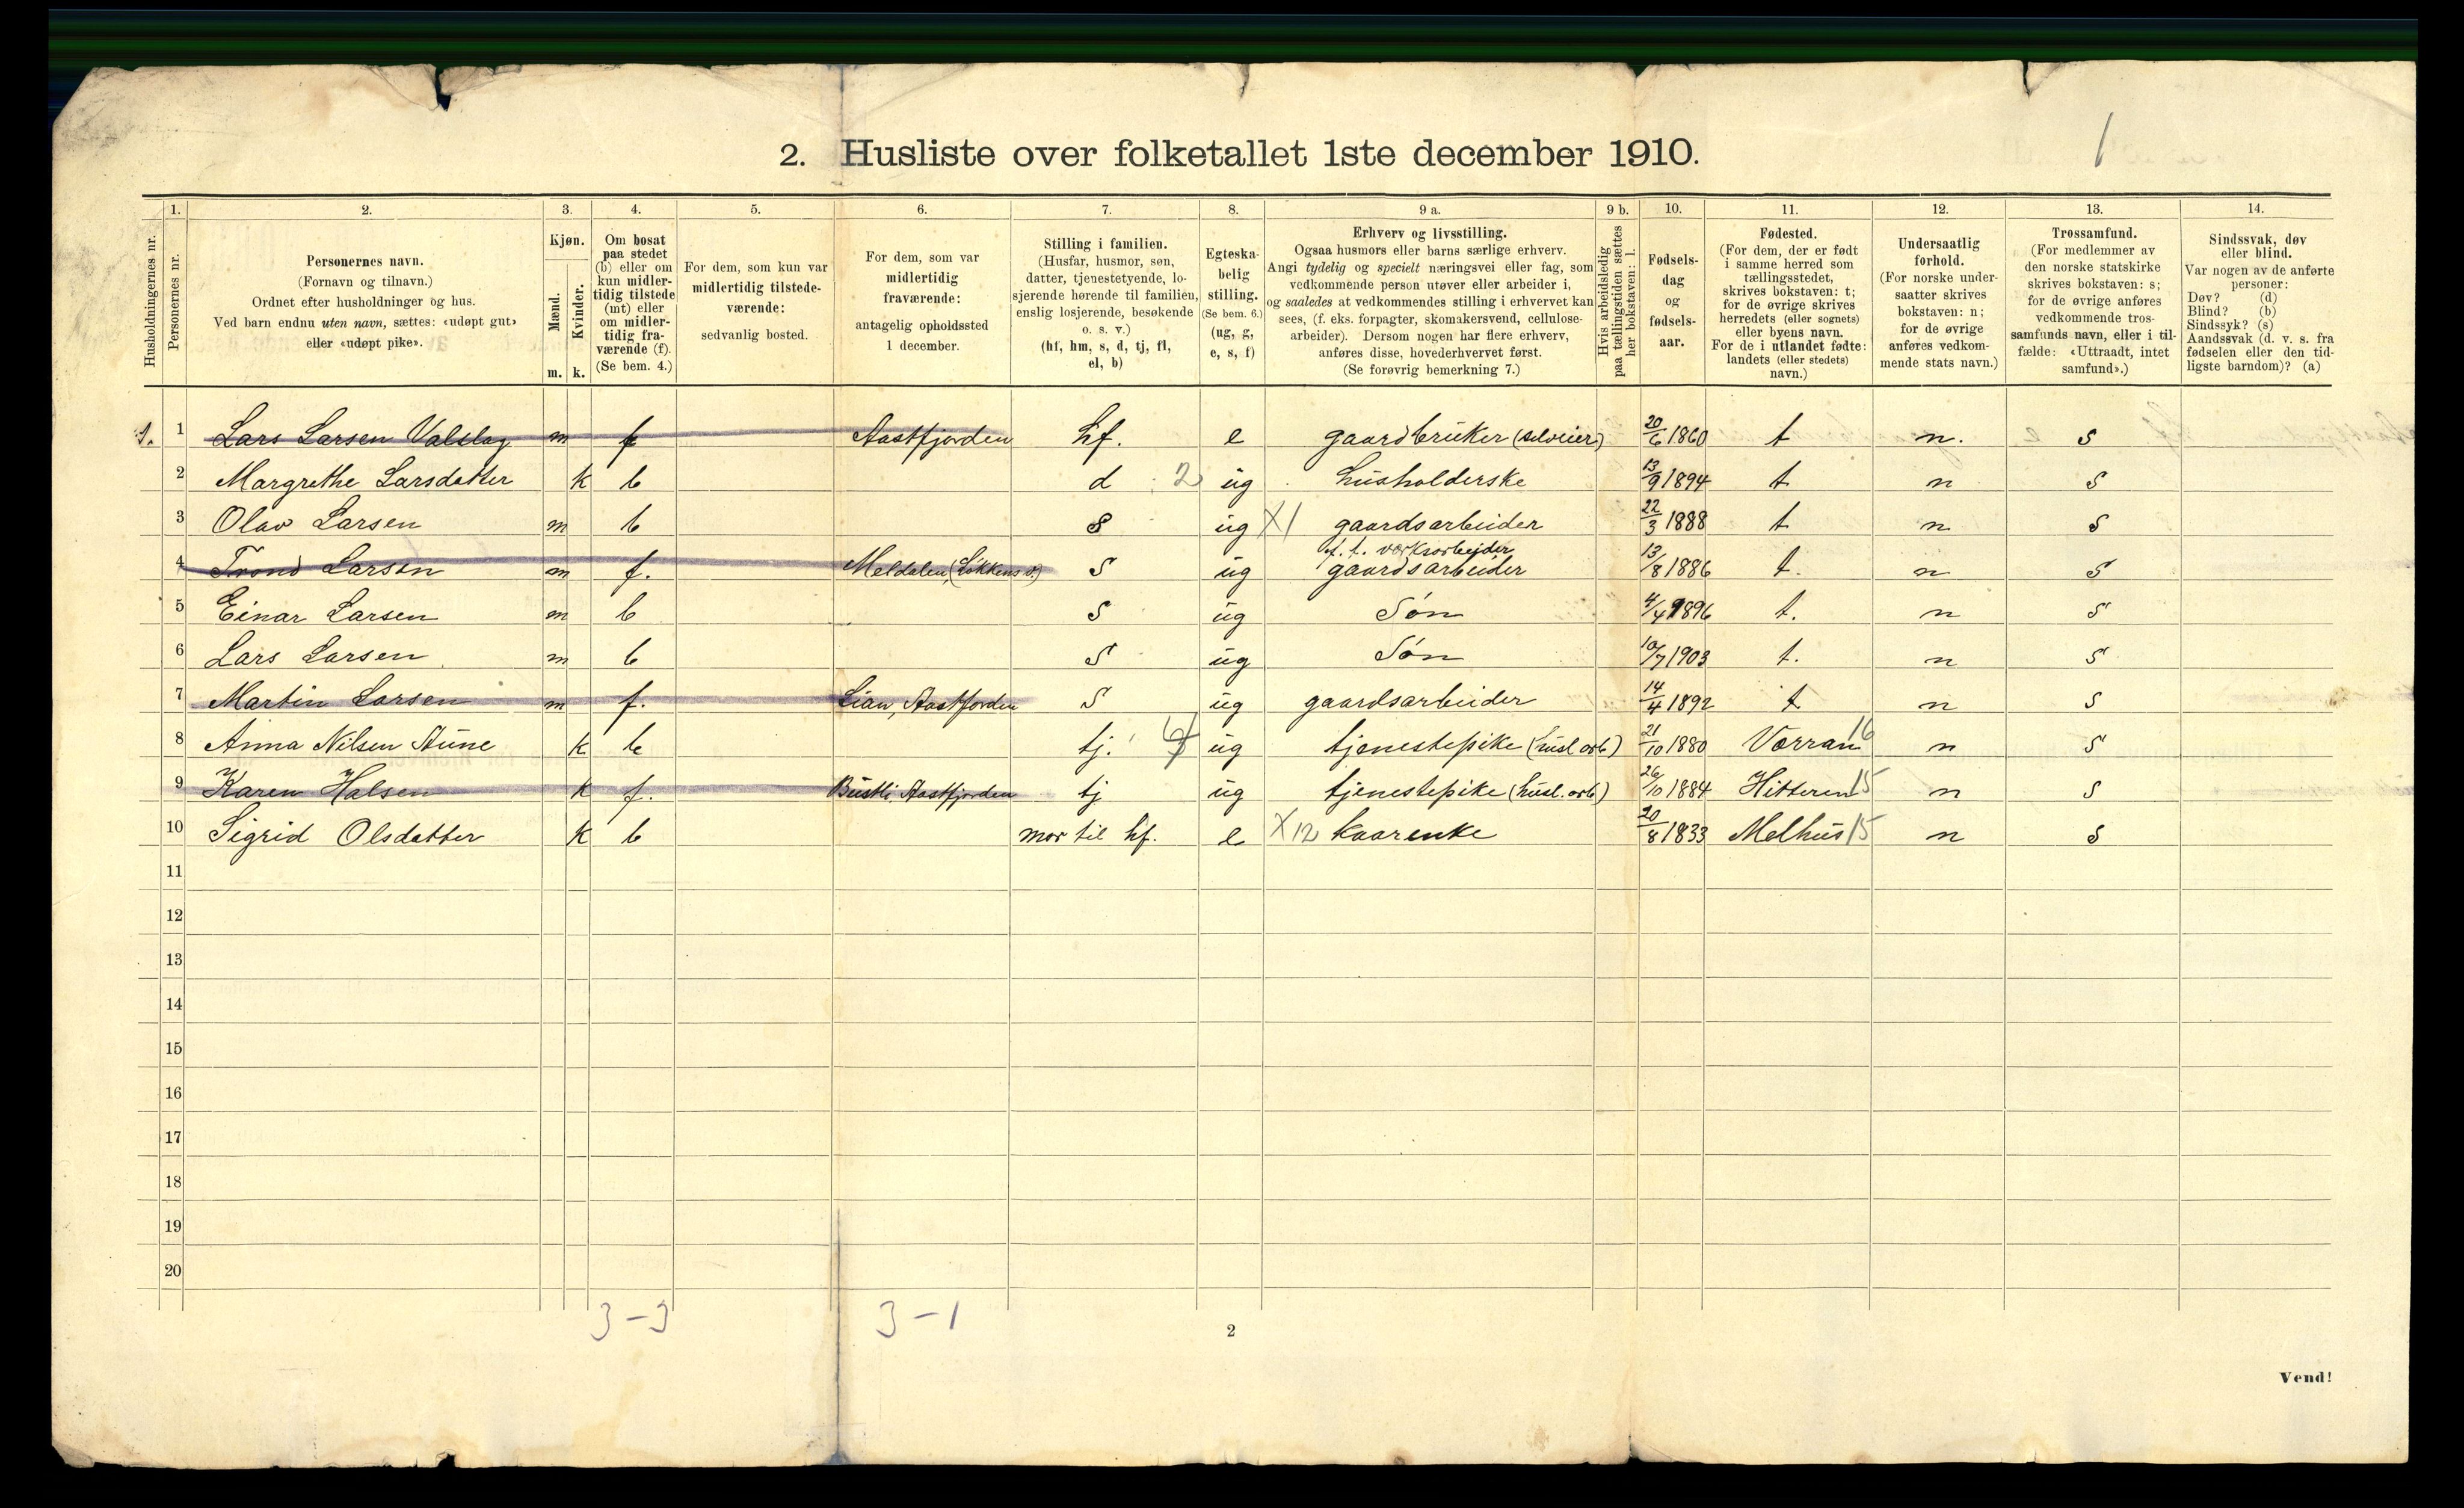 1
2. Husliste over folketallet 1ste december 1910.
Husholdningernes nr.
1.
Personernes nr.
2.
Personernes navn.
(Fornavn og tilnavn.)
Ordnet efter husholdninger og hus.
Ved barn endnu uten navn, sættes: «udøpt gut»
eller «udøpt pike».
3.
Kjøn.
Mænd.
Kvinder.
m. k.
4.
Om bosat
paa stedet
(b) eller om
kun midler-
tidig tilstede
(mt) eller
om midler-
tidig fra-
værende (f).
(Se bem. 4.)
5.
For dem, som kun var
midlertidig tilstede-
værende:
sedvanlig bosted.
6.
For dem, som var
midlertidig
fraværende:
antagelig opholdssted
1 december.
7.
Stilling i familien.
(Husfar, husmor, søn,
datter, tjenestetyende, lo-
sjerende hørende til familien,
enslig losjerende, besøkende
o. s. v.)
(hf, hm, s, d, tj, fl,
el, b)
8.
Egteska-
belig
stilling.
(Se bem. 6.)
(ug, g,
e, s, f)
9 a.
Erhverv og livsstilling.
Ogsaa husmors eller barns særlige erhverv.
Angi tydelig og specielt næringsvei eller fag, som
vedkommende person utøver eller arbeider i,
og saaledes at vedkommendes stilling i erhvervet kan
sees, (f. eks. forpagter, skomakersvend, cellulose-
arbeider). Dersom nogen har flere erhverv,
anføres disse, hovederhvervet først.
(Se forøvrig bemerkning 7.)
9 b.
Hvis arbeidsledig
paa tællingstiden sættes
her bokstaven: l.
10.
Fødsels-
dag
og
fødsels-
aar.
11.
Fødested.
(For dem, der er født
i samme herred som
tællingsstedet,
skrives bokstaven: t;
for de øvrige skrives
herredets (eller sognets)
eller byens navn.
For de i utlandet fødte:
landets (eller stedets)
navn.)
12.
Undersaatlig
forhold.
(For norske under-
saatter skrives
bokstaven: n;
for de øvrige
anføres vedkom-
mende stats navn.)
13.
Trossamfund.
(For medlemmer av
den norske statskirke
skrives bokstaven: s;
for de øvrige anføres
vedkommende tros-
samfunds navn, eller i til-
fælde: «Uttraadt, intet
samfund».)
14.
Sindssvak, døv
eller blind.
Var nogen av de anførte
personer:
Døv? (d)
Blind? (b)
Sindssyk? (s)
Aandssvak (d. v. s. fra
fødselen eller den tid-
ligste barndom)? (a)
1. 1 Lars Larsen Valslag m f Aastfjorden hf. e gaardbruker (selveier) 20/6 1860 t n. s
2 Margrethe Larsdatter k b d 2 ug husholderske 13/9 1894 t n s
3 Olav Larsen m b s ug X1 gaardsarbeider 22/3 1888 t n s
f. t. verksarbeider
4 Trond Larsen m f. Meldalen, (Løkkens v.) s ug gaardsarbeider 13/8 1886 t. n s
5 Einar Larsen m b s ug Søn 4/4 1896 t. n s
6 Lars Larsen m b s ug Søn 10/7 1903 t. n s
7 Martin Larsen m f. Lian, Aastfjorden s ug gaardsarbeider 14/4 1892 t n s
8 Anna Nilsen Aune k b tj. ug tjenestepike (husl. arb) 21/10 1880 Værran 16 n s
9 Karen Halsen k f. Bustli, Aastfjorden tj ug tjenestepike (husl. arb) 26/10 1884 Hitteren 15 n s
10 Sigrid Olsdatter k b mor til hf. e X12 kaarenke 20/8 1833 Melhus 15 n s
11
12
13
14
15
16
17
18
19
20
3-3 3-1
2
Vend!